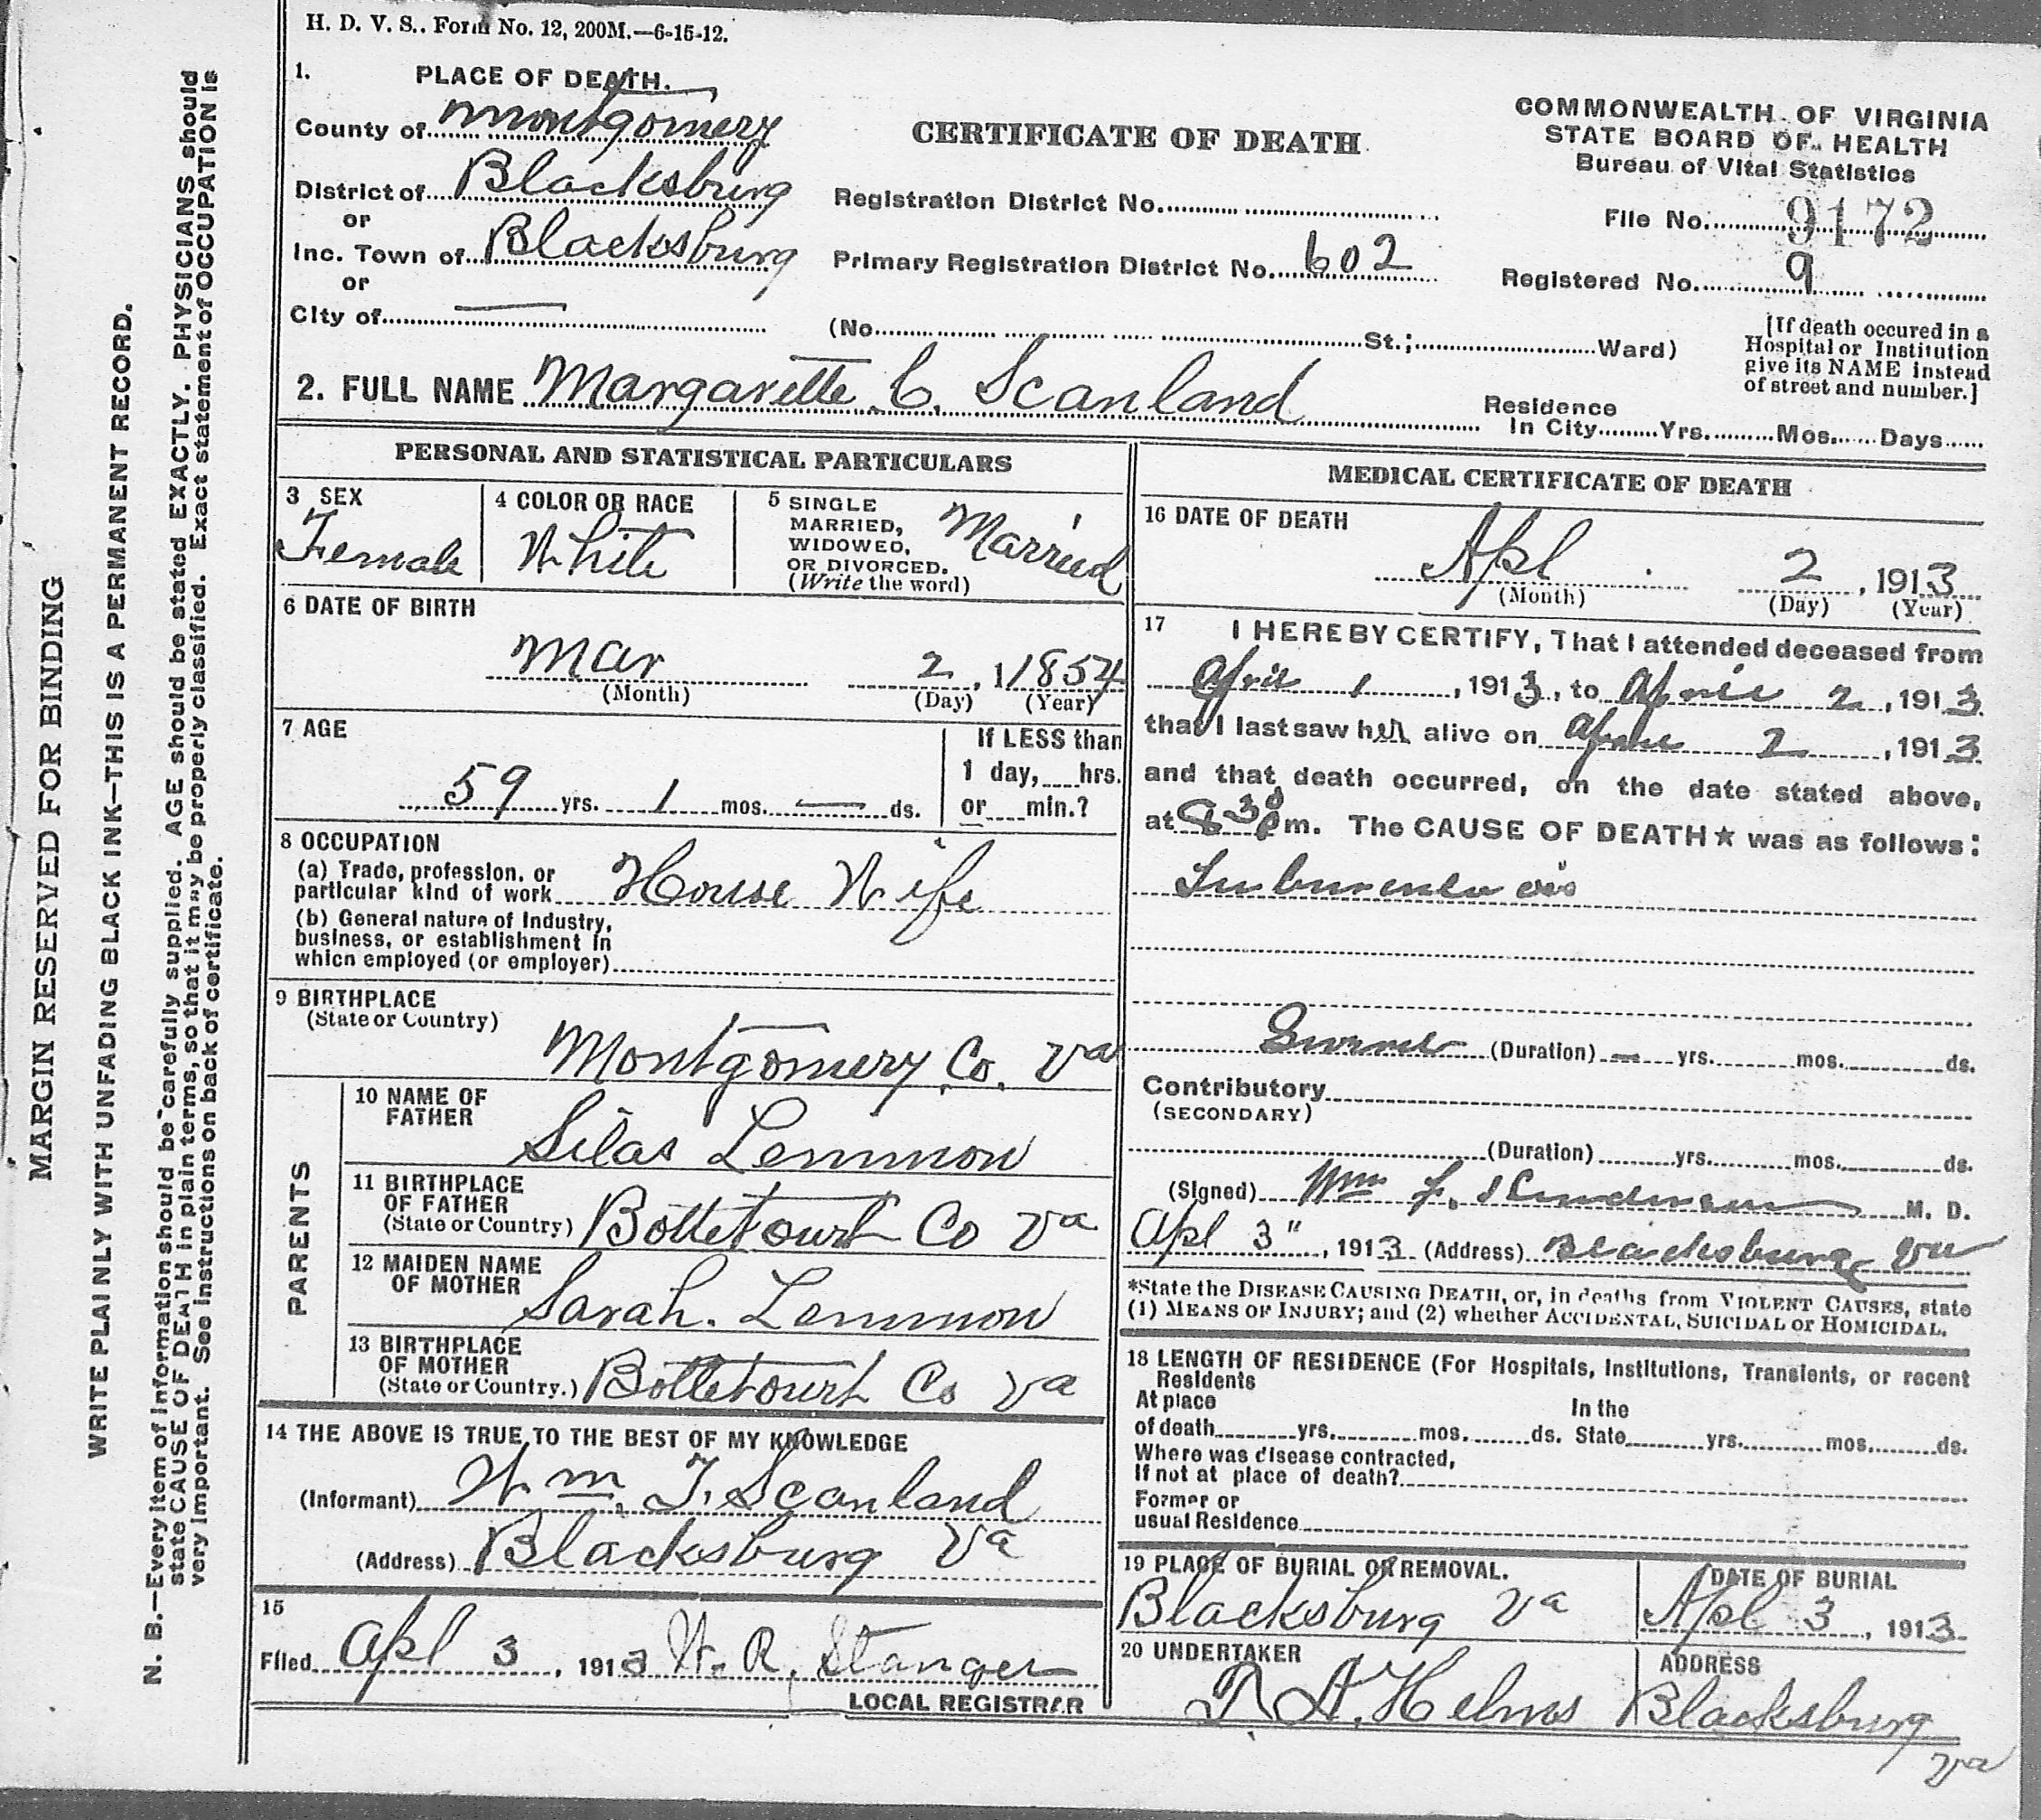 H. D. V. S.. Form No. 12, 200M.—6-15-12.
1. PLACE OF DEATH.
County of Montgomery
District of Blacksburg
or
Inc. Town of Blacksburg
or
City of —
CERTIFICATE OF DEATH
Registration District No.
Primary Registration District No. 602
(No. St.; Ward)
COMMONWEALTH OF VIRGINIA
STATE BOARD OF HEALTH
Bureau of Vital Statistics
File No. 9172
Registered No. 9
[If death occured in a
Hospital or Institution
give its NAME instead
of street and number.]
2. FULL NAME Margarette C. Scanland
Residence
In City Yrs. Mos. Days
PERSONAL AND STATISTICAL PARTICULARS
3 SEX
Female
4 COLOR OR RACE
White
5 SINGLE
MARRIED,
WIDOWED,
OR DIVORCED.
(Write the word)
Married
6 DATE OF BIRTH
Mar 2, 1 1854
(Month) (Day) (Year)
7 AGE
59 yrs. 1 mos. — ds.
If LESS than
1 day, hrs.
or min.?
8 OCCUPATION
(a) Trade, profession, or
particular kind of work House Wife
(b) General nature of Industry,
business, or establishment in
which employed (or employer)
9 BIRTHPLACE
(State or Country)
Montgomery Co. Va
PARENTS
10 NAME OF
FATHER
Silas Lemmon
11 BIRTHPLACE
OF FATHER
(State or Country) Bottetourt Co Va
12 MAIDEN NAME
OF MOTHER
Sarah. Lemmon
13 BIRTHPLACE
OF MOTHER
(State or Country.) Bottetourt Co Va
14 THE ABOVE IS TRUE TO THE BEST OF MY KNOWLEDGE
(Informant) Wm. T. Scanland
(Address) Blacksburg Va
15
Filed Apl 3, 1913 W. R. Stanger
LOCAL REGISTRAR
MEDICAL CERTIFICATE OF DEATH
16 DATE OF DEATH
Apl 2, 1913
(Month) (Day) (Year)
17 I HEREBY CERTIFY, That I attended deceased from
April 1, 1913, to April 2, 1913
that I last saw her alive on April 2, 1913
and that death occurred, on the date stated above,
at 8 30 p m. The CAUSE OF DEATH★ was as follows:
Tuberculosis
(Duration) — yrs. mos. ds.
Contributory
(SECONDARY)
(Duration) yrs. mos. ds.
(Signed) Wm F. Henderson M. D.
Apl 3", 1913 (Address) Blacksburg Va
*State the DISEASE CAUSING DEATH, or, in deaths from VIOLENT CAUSES, state
(1) MEANS OF INJURY; and (2) whether ACCIDENTAL, SUICIDAL or HOMICIDAL.
18 LENGTH OF RESIDENCE (For Hospitals, Institutions, Transients, or recent
Residents
At place In the
of death yrs. mos. ds. State yrs. mos. ds.
Where was disease contracted,
If not at place of death?
Former or
usual Residence
19 PLACE OF BURIAL OR REMOVAL.
Blacksburg Va
DATE OF BURIAL
Apl 3, 1913
20 UNDERTAKER
A. Helms
ADDRESS
Blacksburg
Va
MARGIN RESERVED FOR BINDING
WRITE PLAINLY WITH UNFADING BLACK INK—THIS IS A PERMANENT RECORD.
N. B.—Every item of information should be carefully supplied. AGE should be stated EXACTLY. PHYSICIANS should
state CAUSE OF DEATH in plain terms, so that it may be properly classified. Exact statement of OCCUPATION is
very important. See instructions on back of certificate.